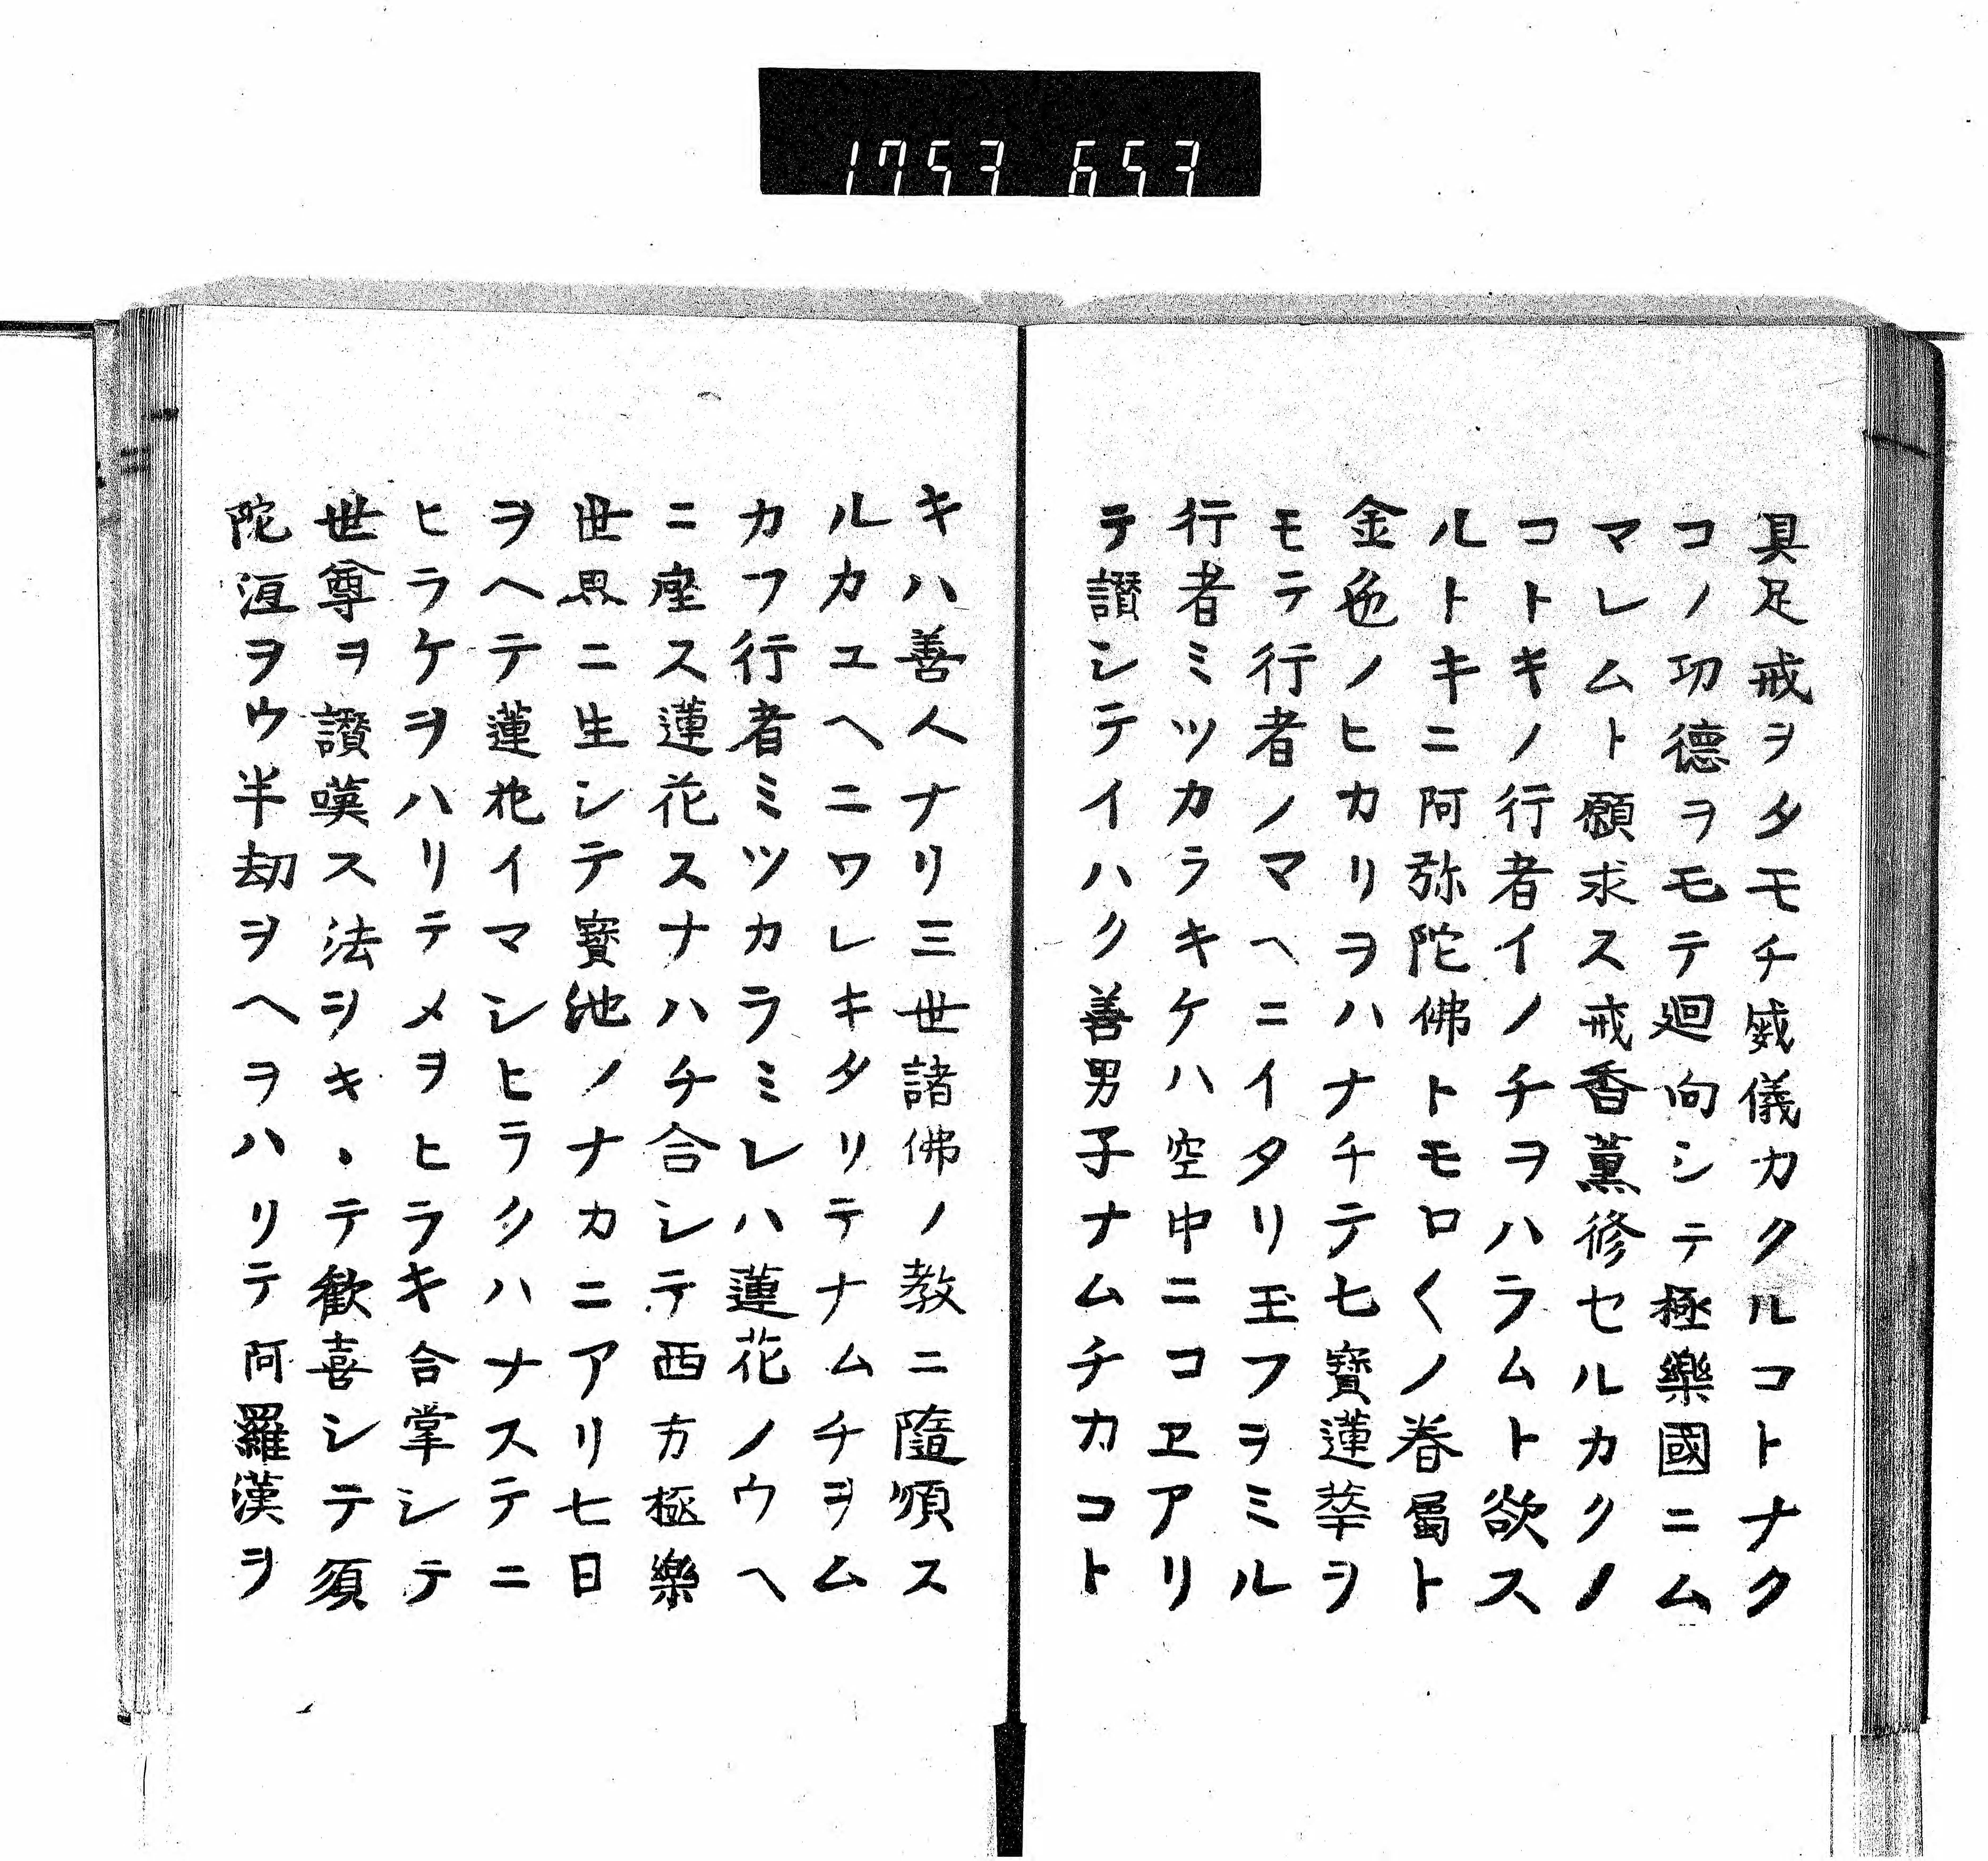 1753 653
具足戒ヲタモチ威儀カクルコトナク
コノ功德ヲモテ廻向シテ極樂國ニム
マレムト願求ス戒香薫修セルカクノ
コトキノ行者イノチヲハラムト欲ス
ルトキニ阿弥陀佛トモロ〱ノ眷屬ト
金色ノヒカリヲハナチテ七寶蓮華ヲ
モテ行者ノマヘニイタリ玉フヲミル
行者ミツカラキケハ空中ニコヱアリ
テ讃シテイハク善男子ナムチカコト
キハ善人ナリ三世諸佛ノ教ニ隨順ス
ルカユヘニワレキタリテナムチヲム
カフ行者ミツカラミレハ蓮花ノウヘ
ニ座ス蓮花スナハチ合シテ西方極樂
世界ニ生シテ寶池ノナカニアリ七日
ヲヘテ蓮花イマシヒラクハナステニ
ヒラケヲハリテメヲヒラキ合掌シテ
世尊ヲ讃嘆ス法ヲキヽテ歓喜シテ須
陀洹ヲウ半劫ヲヘヲハリテ阿羅漢ヲ